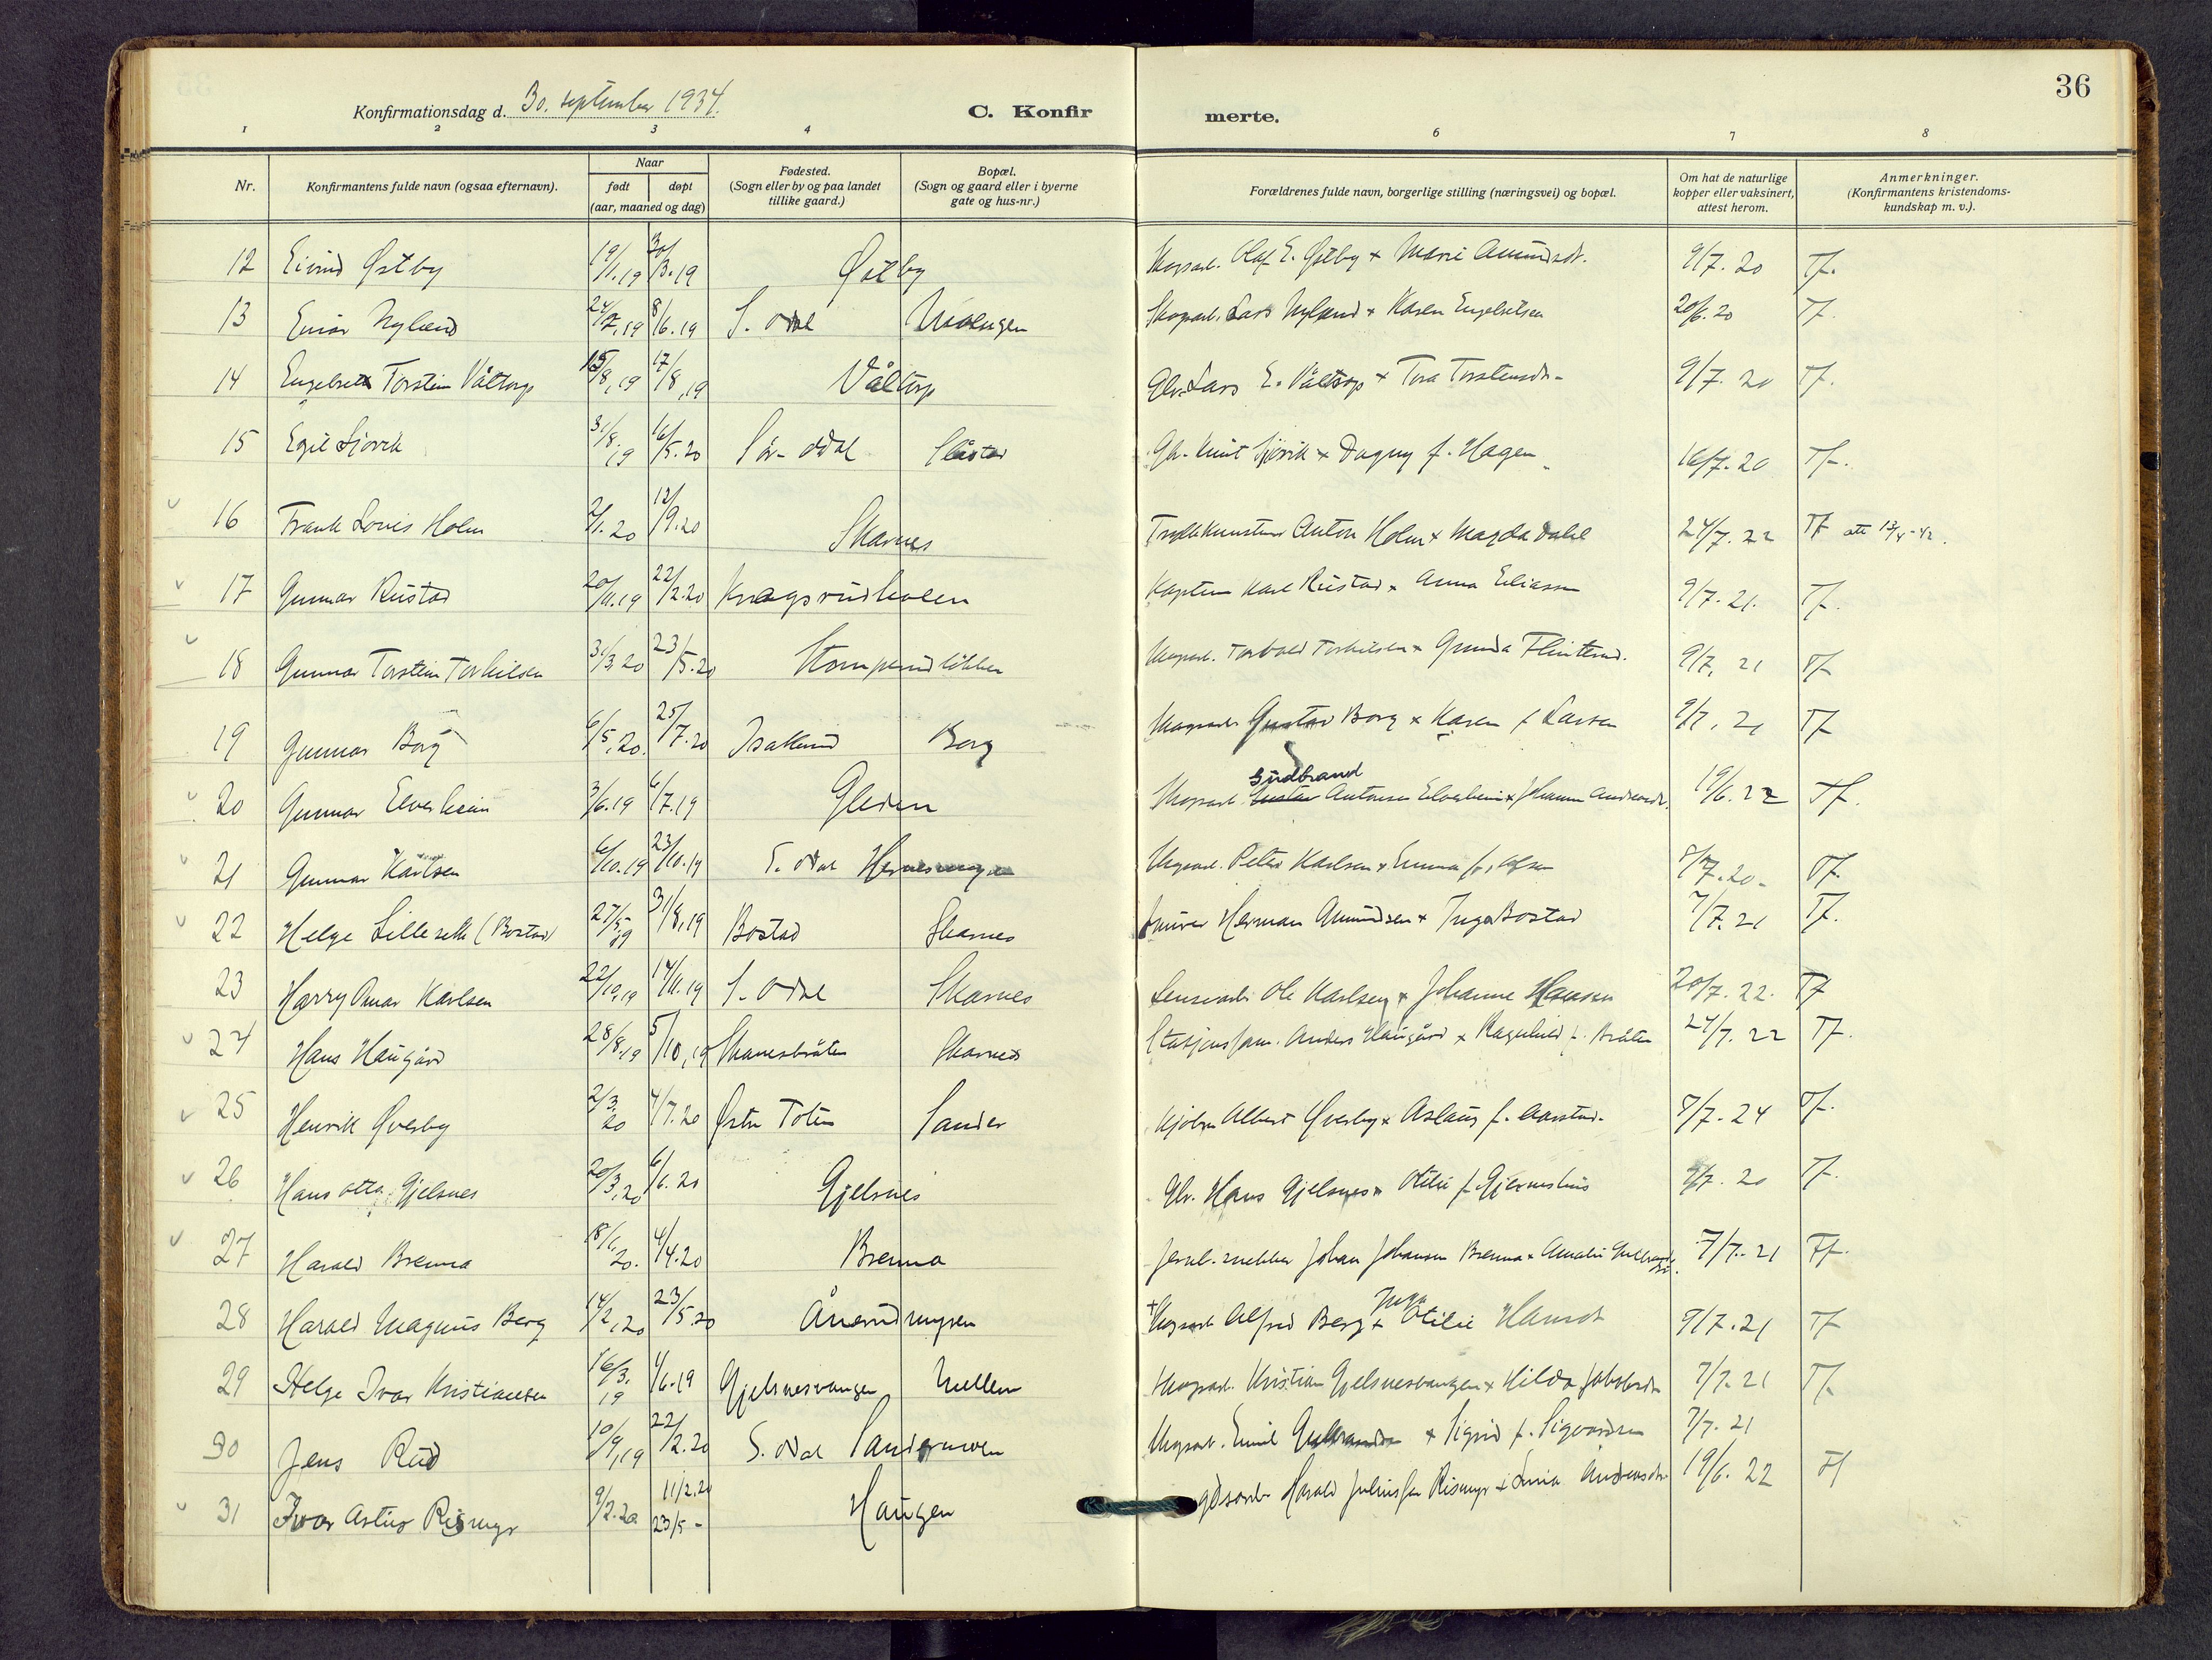 36
Konfirmationsdag d. 30. september 1934. C. Konfir merte.
1 2 3 4 6 7 8
Nr. Konfirmantens fulde navn (ogsaa efternavn). Naar født døpt (aar, maaned og dag) Fødested. (Sogn eller by og paa landet tillike gaard.) Bopæl. (Sogn og gaard eller i byerne gate og hus-nr.) Forældrenes fulde navn, borgerlige stilling (næringsvei) og bopæl. Om hat de naturlige kopper eller vaksinert, attest herom. Anmerkninger. (Konfirmantens kristendoms-kundskap m. v.).
12 Eivind Østby 19/1.19 30/3.19 Østby Skogsarb. Olaf E. Østby + Marie Amundsdt. 9/7. 20 Tf.
13 Einar Nyland 24/2.19 8/6.19 S. Odal Skogsarb. Lars Nyland + Karen Engebretsen 20/6.20 Tf.
14 Engebret Torstein Våltorp 15/8.19 17/8.19 Våltorp Gbr. Lars E. Våltorp + Tora Torstensdt. 9/7. 20 Tf.
15 Egil Sjøvik 31/8.19 16/5.20 Sør-Odal Slåstad Gbr. Knut Sjøvik + Dagny f. Hagen 16/7.20 Tf.
16 Frank Louis Holm 2/1.20 12/9.20 Skarnes Anton Holm + Magda Dahl 24/7.22 Tf att 13/4-42.
17 Gunnar Rustad 20/11.19 22/2.20 Knagsrudholen Kaptein Karl Rustad + Anna Eliassen 9/7.21. Tf.
18 Gunnar Torstein Torkilsen 31/3.20 23/5.20 Stomperudløkken Skogsarb. Torvald Torkilsen + Gunda Flinterud. 9/7, 21 Tf
19 Gunnar Borg 6/5.20. 25/7.20 Isakerud Borg Skogsarb. Gustav Borg + Karen f Larsen 9/7. 21 Tf
20 Gunnar Elverheim 3/6.19 6/7.19 Gleden Skogsarb. Gudbrand Antonsen Elverheim + Johanne Andreasdt. 19/6.22 Tf.
21 Gunnar Karlsen 6/10.19 23/10.19 S. Odal Skogsarb. Peter Karlsen + Emma f. Olsen 8/7.20. Tf.
22 Helge Lilleseth (Bostad) 27/5.19 31/8.19 Bostad Skarnes Murer Herman Amundsen + Inga Bostad 7/7.21 Tf.
23 Harry Omar Karlsen 22/10.19 14/11.19 S. Odal Skarnes Ole Karlsen + Johanne Hansen 20/7.22. Tf
24 Hans Haugård 28/8.19 5/10.19 Skarnesbråten Skarnes Stasjonsform. Anders Haugård + Ragnhild f. Bråten 24/7.22 Tf.
25 Henrik Øverby 2/3.20 4/7.20 Østre Toten Sander Kjøbm Albert Øverby + Aslaug f. Aarstad. 8/7.24 Tf.
26 Hans Otto Gjelsnes 20/3.20 6/6.20 Gjelsnes Gbr. Hans Gjelsnes + Otilie f. Gjermshus 9/7.20 Tf.
27 Harald Brenna 18/1.20. 4/4.20 Brenna Jernb.snekker Johan Johansen Brenna + Amalie 7/7.21 Tf.
28 Harald Magnus Berg 14/2.20 23/5.20 Ånerudmyren + Skogsarb Alfred Berg + Inga Otilie Hansdt 9/7.21 Tf
29 Helge Ivar Kristiansen 16/3.19 1/6.19 Gjelsnesvangen Mellem Skogsarb. Kristian Gjelsnesvangen + Hilda Jakobsdt. 7/7.21 Tf.
30 Jens Rud 10/9.19 22/2.20 S. Odal Sandermoen Skogsarb. Emil Gulbrandsen + Sigrid f. Sigvardsen 7/7.21
31 Ivar Artur Rismyr 9/2.20 11/2.20 23/5 - Haugen gdsarb. Harald Juliussen Rismyr + Andreasdt. 19/6.22 Tf